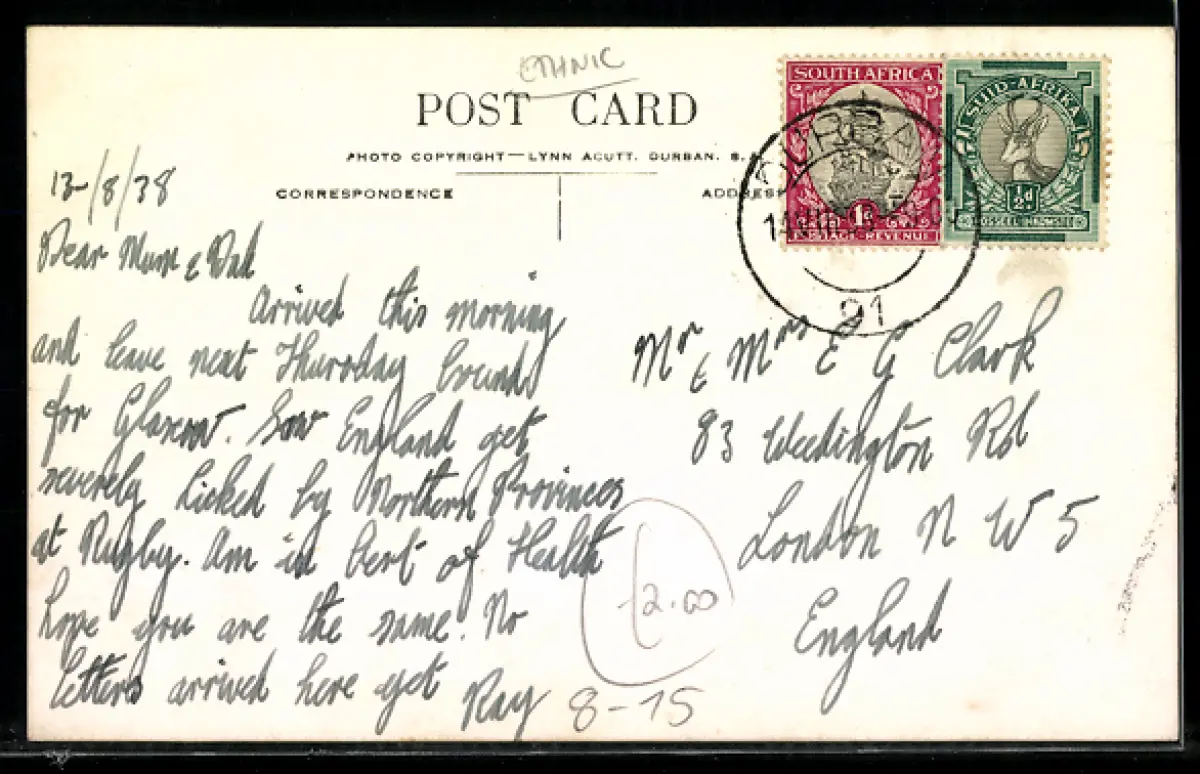 ETHNIC
POST CARD
PHOTO COPYRIGHT—LYNN ACUTT. DURBAN. S.A
CORRESPONDENCE
ADDRESS
SOUTH AFRICA
1d
POSTAGE REVENUE
SUID-AFRIKA
½d
POSSEËL INKOMSTE
DURBAN
14 VIII 38
91
13/8/38
Dear Mum & Dad
Arrived this morning
and leave next Thursday bound
for Glasgow. Saw England get
severely Licked by Northern Provinces
at Rugby. Am in best of Health
hope you are the same. No
letters arrived here yet
Ray
Mr & Mrs E G Clark
83 Weedington Rd
London N W 5
England
£2.00
8-15